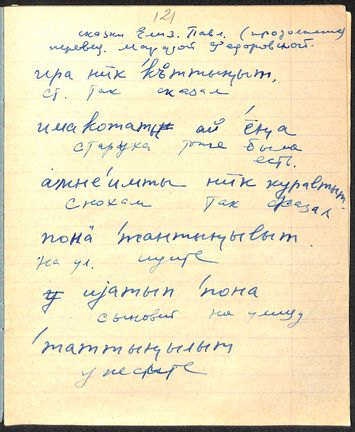 121
сказки Елиз. Павл. (продолжение)
перевод. Марфой Федоровной.
ира ник 'кəттыңыт.
ст. так сказал
имакотаты ай 'ёңа
старуха тоже была
есть.
амне'имты ник куралтыт.
снохам так сказал
понä 'тантыңылыт.
на ул. идите
иjатып 'пона
сыновей на улицу
'таттыңылыт
унесите